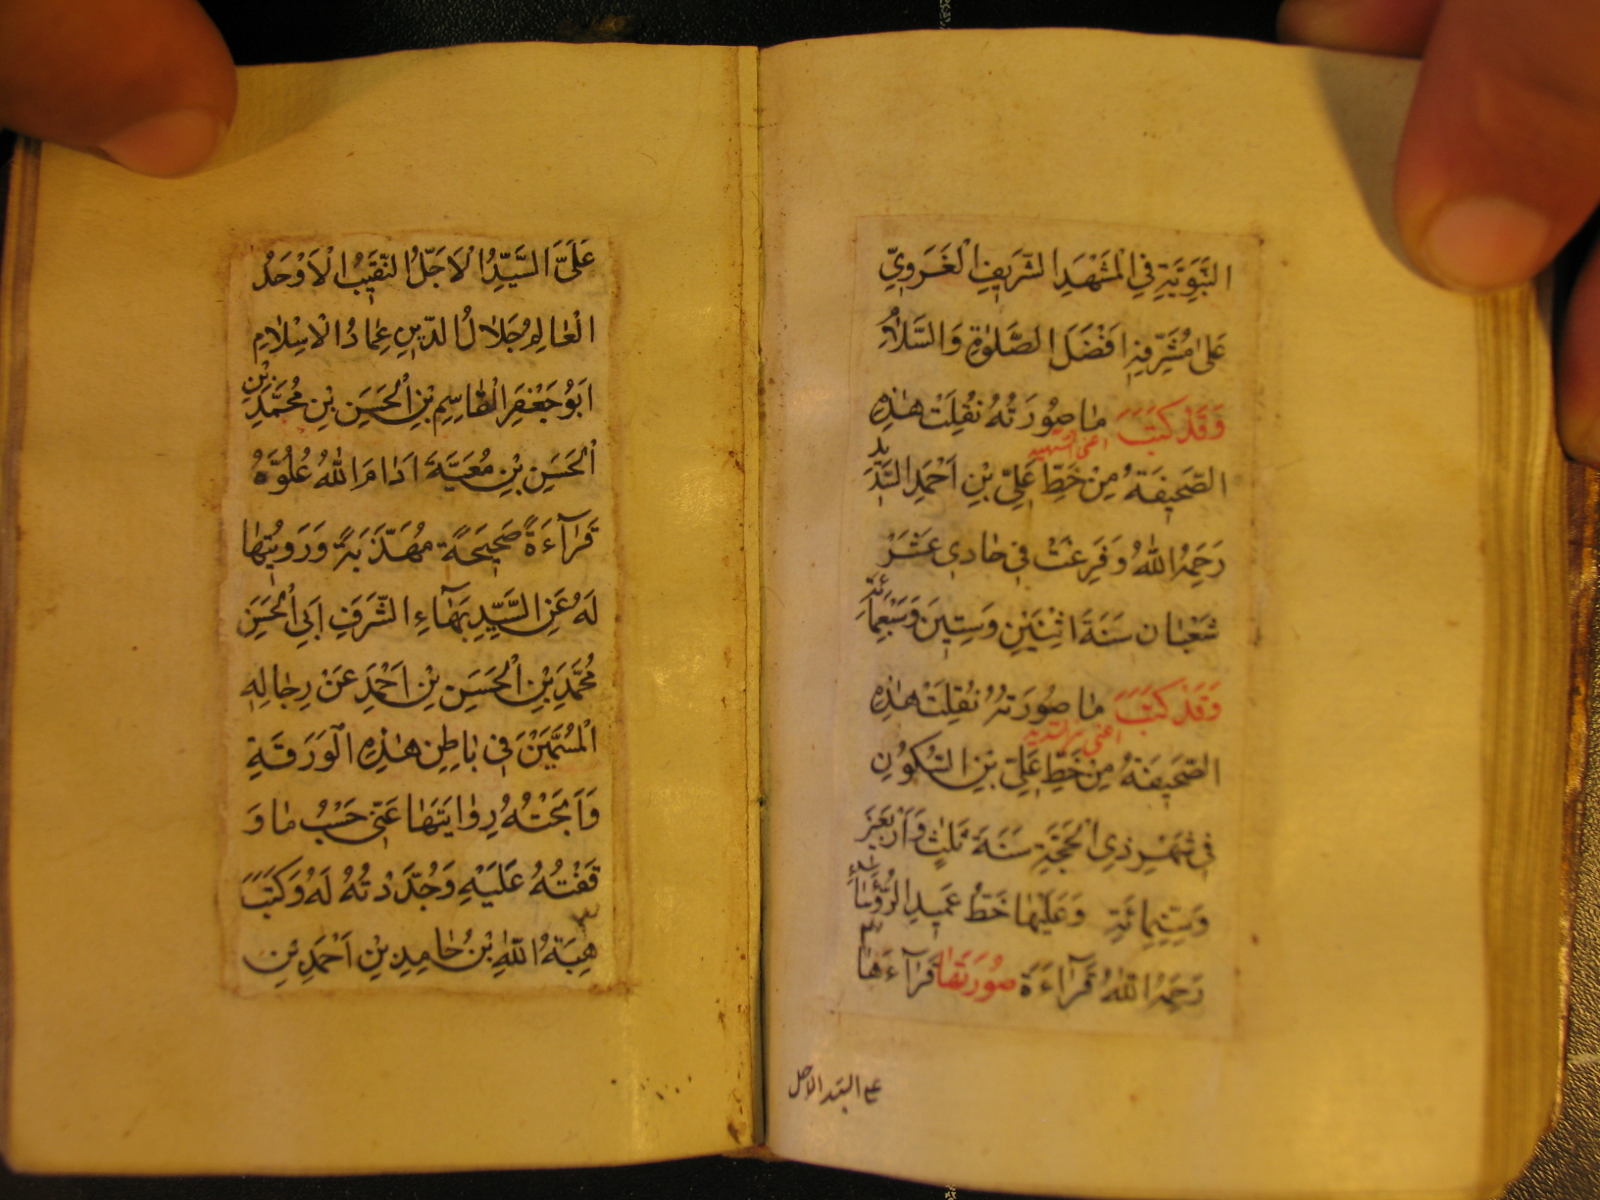 النَّبَوِيَّةِ فِي الْمَشْهَدِ الشَّرِيفِ الْغَرَوِيِّ
عَلىٰ مُشَرِّفِهِ اَفْضَلُ الصَّلوٰةِ وَالسَّلاٰمُ
وَقَدْ كَتَبَ مٰا صُورَتُهُ نُقِلَتْ هٰذِهِ
اعنى الشهيد
الصَّحِيفَةُ مِنْ خَطِّ عَلِيِّ بْنِ اَحْمَدِ السَّدِيدِ
رَحِمَهُ اللّٰهُ وَفَرِغْتُ فِي حٰادِي عَشَرَ
شَعْبٰانَ سَنَةَ اثْنَيْنِ وَسِتِّينَ وَسَبْعِمِائَةٍ
وَقَدْ كَتَبَ مٰا صُورَتُهُ نُقِلَتْ هٰذِهِ
اعنى السديد
الصَّحِيفَةُ مِنْ خَطِّ عَلِيِّ بْنِ السَّكُونِ
فِي شَهْرِ ذِي الْحَجَّةِ سَنَةَ ثَلٰثٍ وَاَرْبَعِينَ
وَسِتِّمِائَةٍ وَعَلَيْهٰا خَطُّ عَمِيدِ الرُّؤَسٰاءِ
رَحِمَهُ اللّٰهُ قَرٰآءَةً صُورَتُهٰا قَرَآءَهٰا
على السيد الاجل
عَلَيَّ السَّيِّدُ الْاَجَلُّ النَّقِيبُ الْاَوْحَدُ
الْعٰالِمُ جَلاٰلُ الدِّينِ عِمٰادُ الْاِسْلاٰمِ
اَبُو جَعْفَرِ الْقٰاسِمِ بْنِ الْحَسَنِ بْنِ مُحَمَّدِ بْنِ
الْحَسَنِ بْنِ مُعَيَّةَ اَدٰامَ اللّٰهُ عُلُوَّهُ
قَرٰآءَةً صَحِيحَةً مُهَذَّبَةً وَرَوَيْتُهٰا
لَهُ عَنِ السَّيِّدِ بَهٰآءِ الشَّرَفِ اَبِي الْحَسَنِ
مُحَمَّدِ بْنِ الْحَسَنِ بْنِ اَحْمَدَ عَنْ رِجٰالِهِ
الْمُسَمَّيْنَ فِي بٰاطِنِ هٰذِهِ الْوَرَقَةِ
وَاَبَحْتُهُ رِوٰايَتَهٰا عَنِّي حَسْبَ مٰا وَ
قَفْتُهُ عَلَيْهِ وَحُدِّدَتْهُ لَهُ وَكَتَبَ
هِبَةُ اللّٰهِ بْنُ حٰامِدِ بْنِ اَحْمَدِ بْنِ